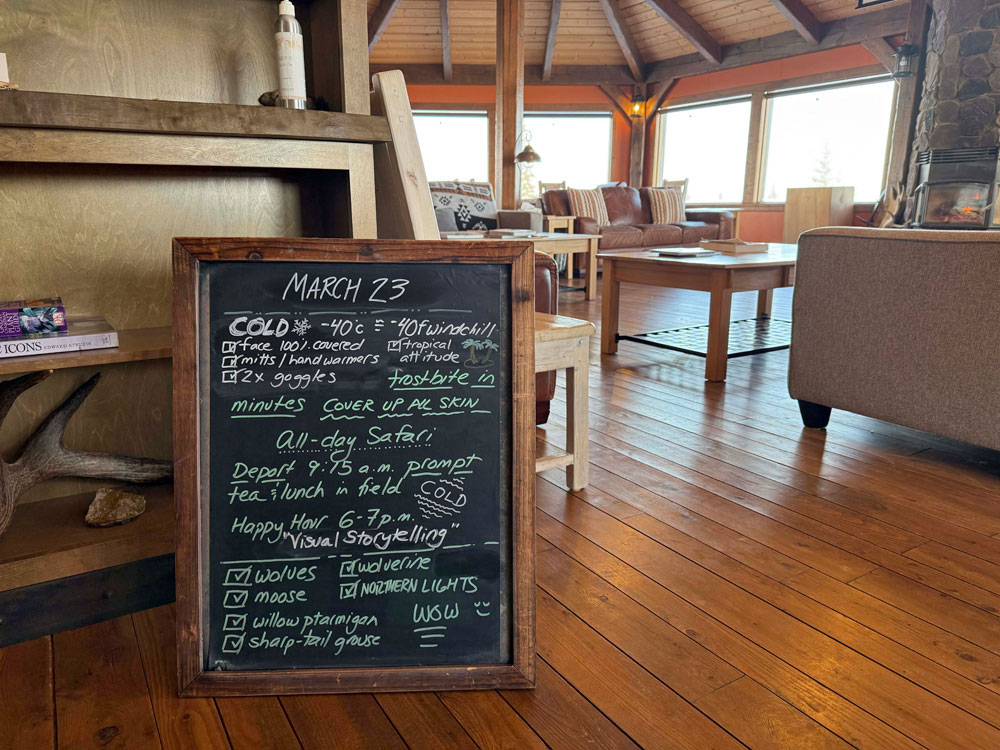 MARCH 23
COLD -40°C = -40f windchill
face 100% covered
mitts/handwarmers
2x goggles
tropical
attitude
frostbite in
minutes COVER UP ALL SKIN
All-day Safari
Depart 9:15 a.m. prompt
tea & lunch in field
COLD
Happy Hour 6-7 p.m.
"Visual Storytelling"
wolves
moose
willow ptarmigan
sharp-tail grouse
wolverine
NORTHERN LIGHTS
WOW
ICONS